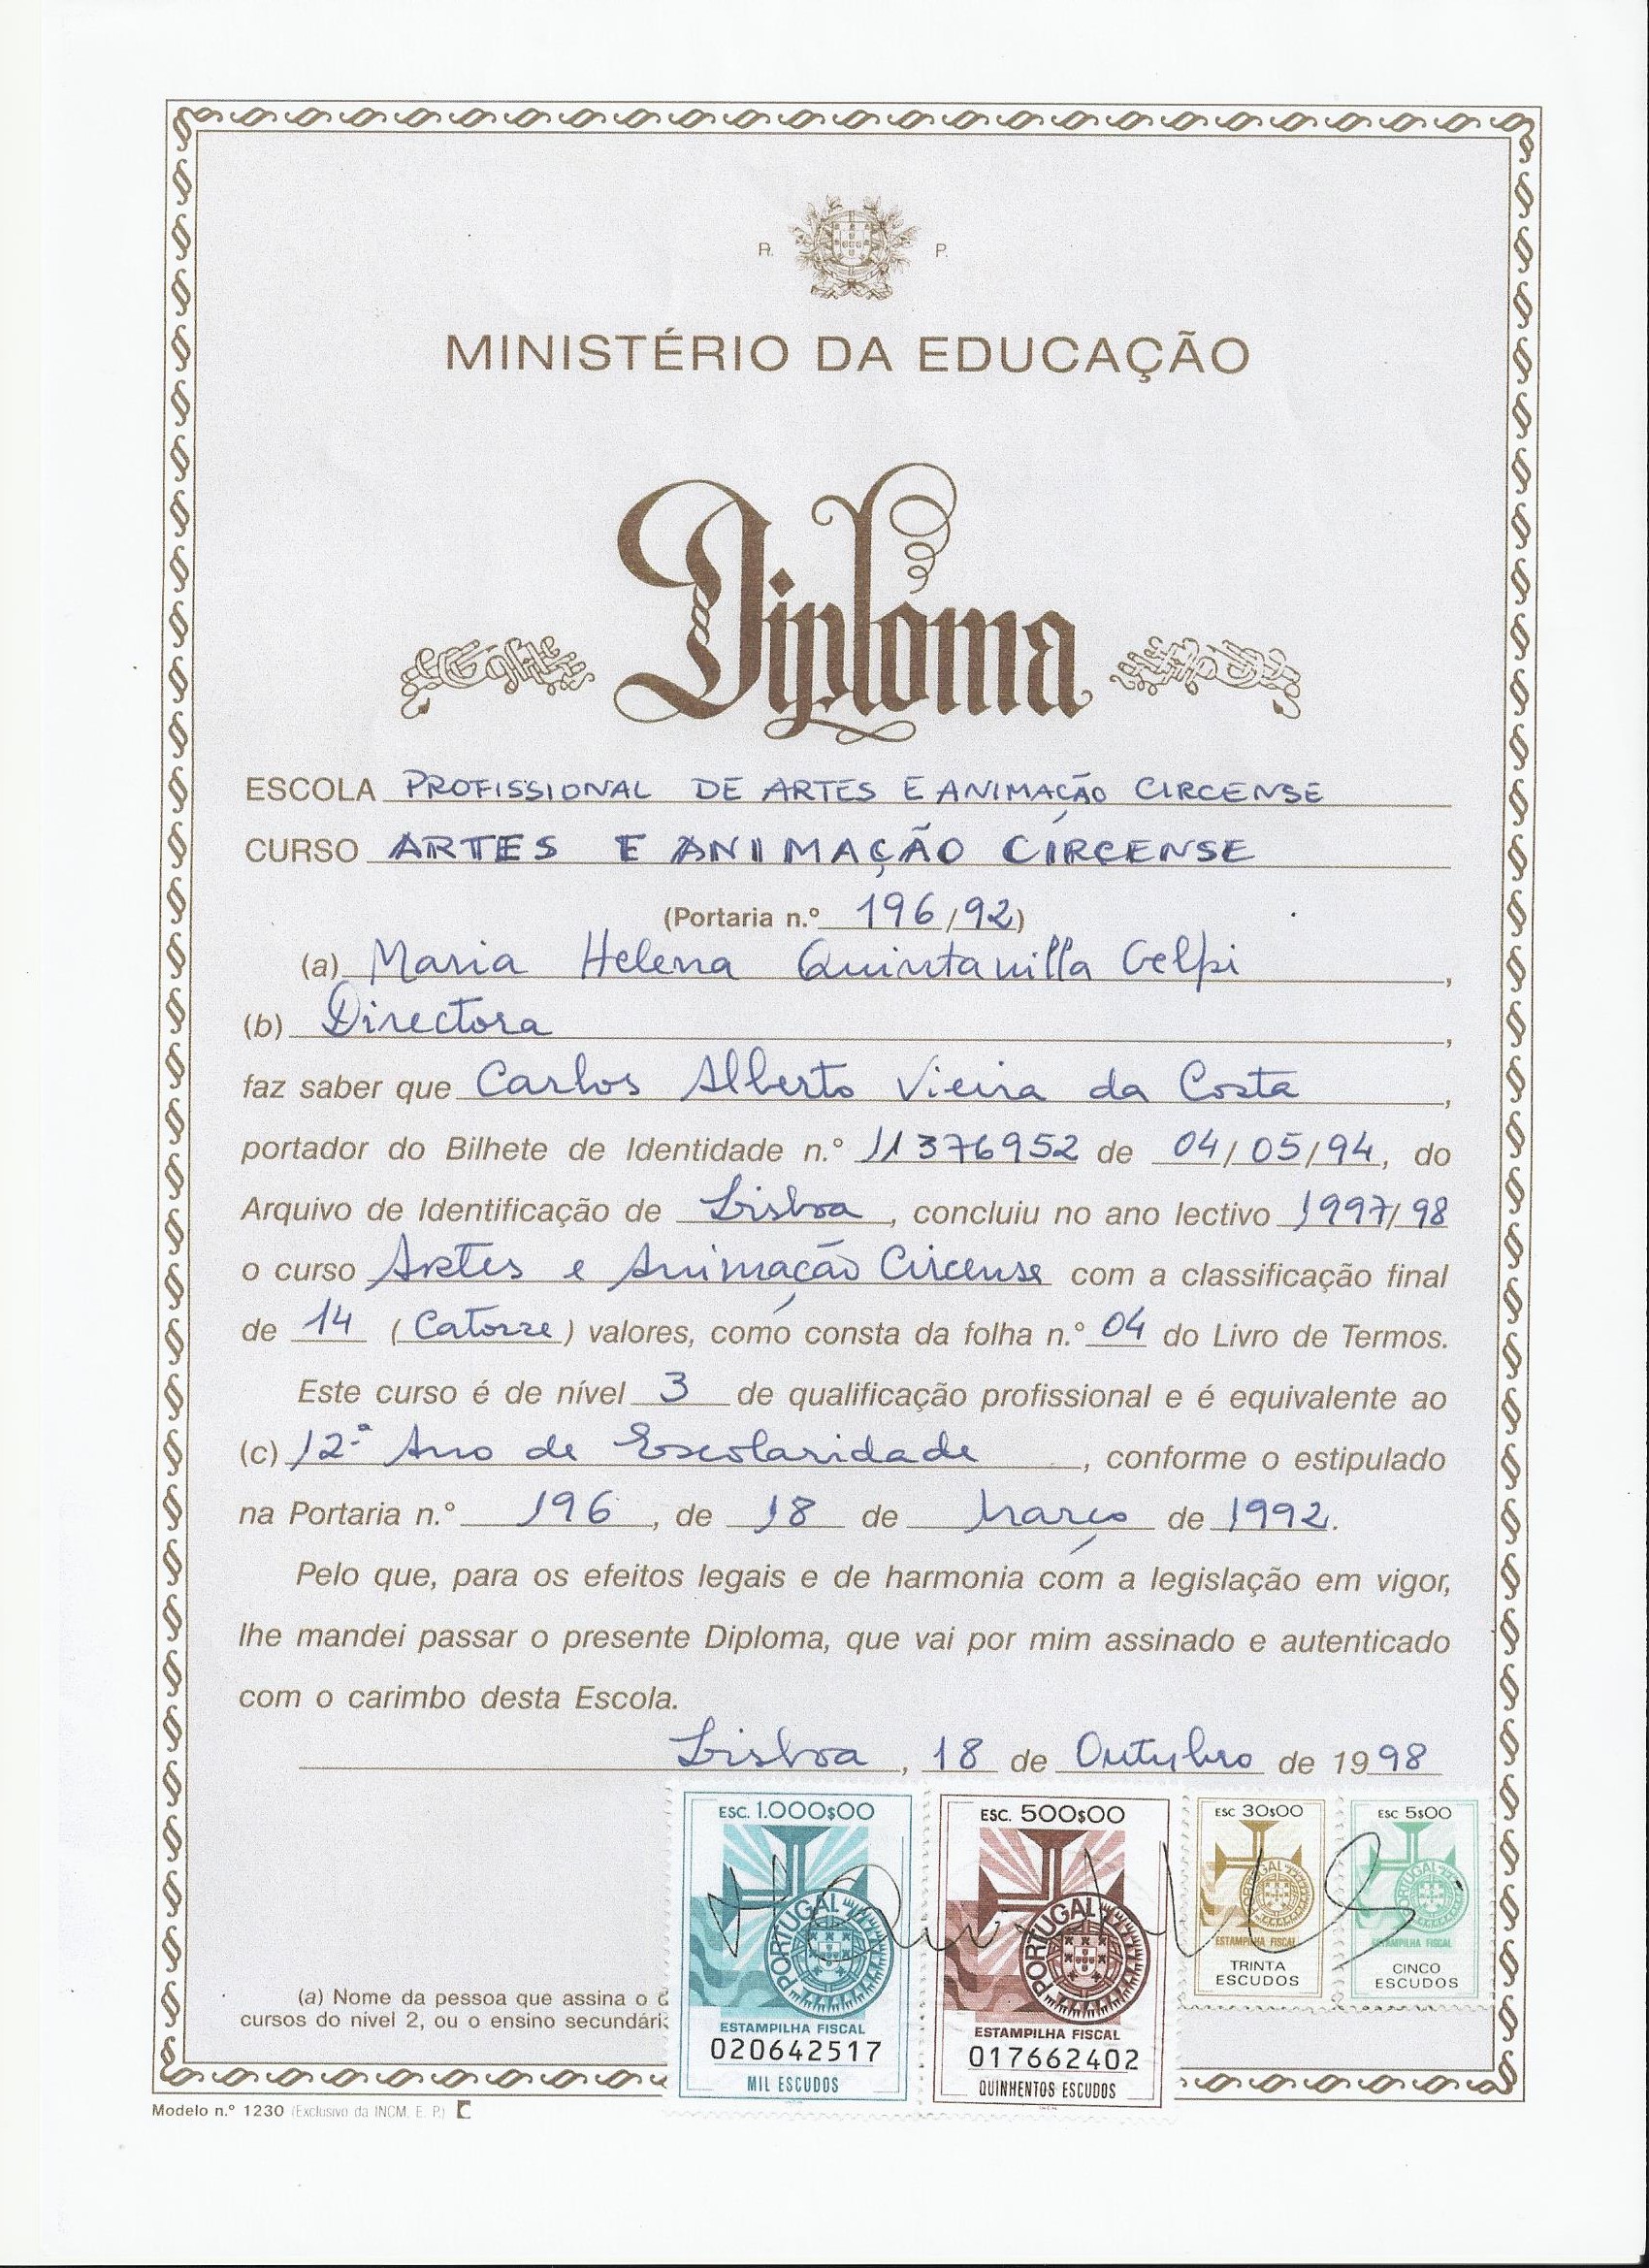 R. P.
MINISTÉRIO DA EDUCAÇÃO
Diploma
ESCOLA PROFISSIONAL DE ARTES E ANIMAÇÃO CIRCENSE
CURSO ARTES E ANIMAÇÃO CIRCENSE
(Portaria n.º 196/92)
(a) Maria Helena Quintanilla Gelpi,
(b) Directora,
faz saber que Carlos Alberto Vieira da Costa,
portador do Bilhete de Identidade n.º 11376952 de 04/05/94, do
Arquivo de Identificação de Lisboa, concluiu no ano lectivo 1997/98
o curso Artes e Animação Circense com a classificação final
de 14 (Catorze) valores, como consta da folha n.º 04 do Livro de Termos.
Este curso é de nível 3 de qualificação profissional e é equivalente ao
(c) 12.º Ano de Escolaridade, conforme o estipulado
na Portaria n.º 196, de 18 de Março de 1992.
Pelo que, para os efeitos legais e de harmonia com a legislação em vigor,
lhe mandei passar o presente Diploma, que vai por mim assinado e autenticado
com o carimbo desta Escola.
Lisboa, 18 de Outubro de 1998
ESC. 1.000$00 ESC. 500$00 ESC 30$00 ESC 5$00
PORTUGAL PORTUGAL PORTUGAL PORTUGAL
ESTAMPILHA FISCAL ESTAMPILHA FISCAL
TRINTA ESCUDOS CINCO ESCUDOS
(a) Nome da pessoa que assina o
cursos do nível 2, ou o ensino
ESTAMPILHA FISCAL ESTAMPILHA FISCAL
020642517 017662402
MIL ESCUDOS QUINHENTOS ESCUDOS
Modelo n.º 1230 (Exclusivo da INCM, E. P.)